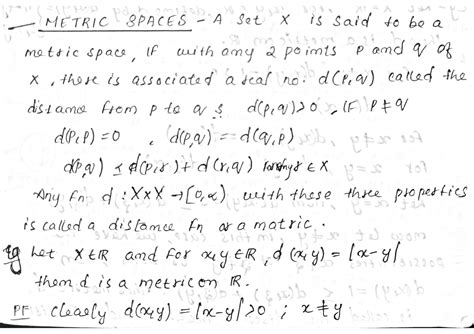 METRIC SPACES - A Set X is said to be a
metric space, If with any 2 points p and q of
X, there is associated a real no. d(p,q) called the
distance from p to q s d(p,q)>0, If p ≠ q
d(p,p) = 0 , d(p,q) = d(q,p)
d(p,q) ≤ d(p,r) + d(r,q) r ∈ X
Any fn d : X×X → [0,∝) with these three properties
is called a distance fn or a matric.
Eg Let X ∈ R and for x,y ∈ R, d(x,y) = |x-y|
then d is a metric on R.
PF clearly d(x,y) = |x-y|>0 ; x ≠ y